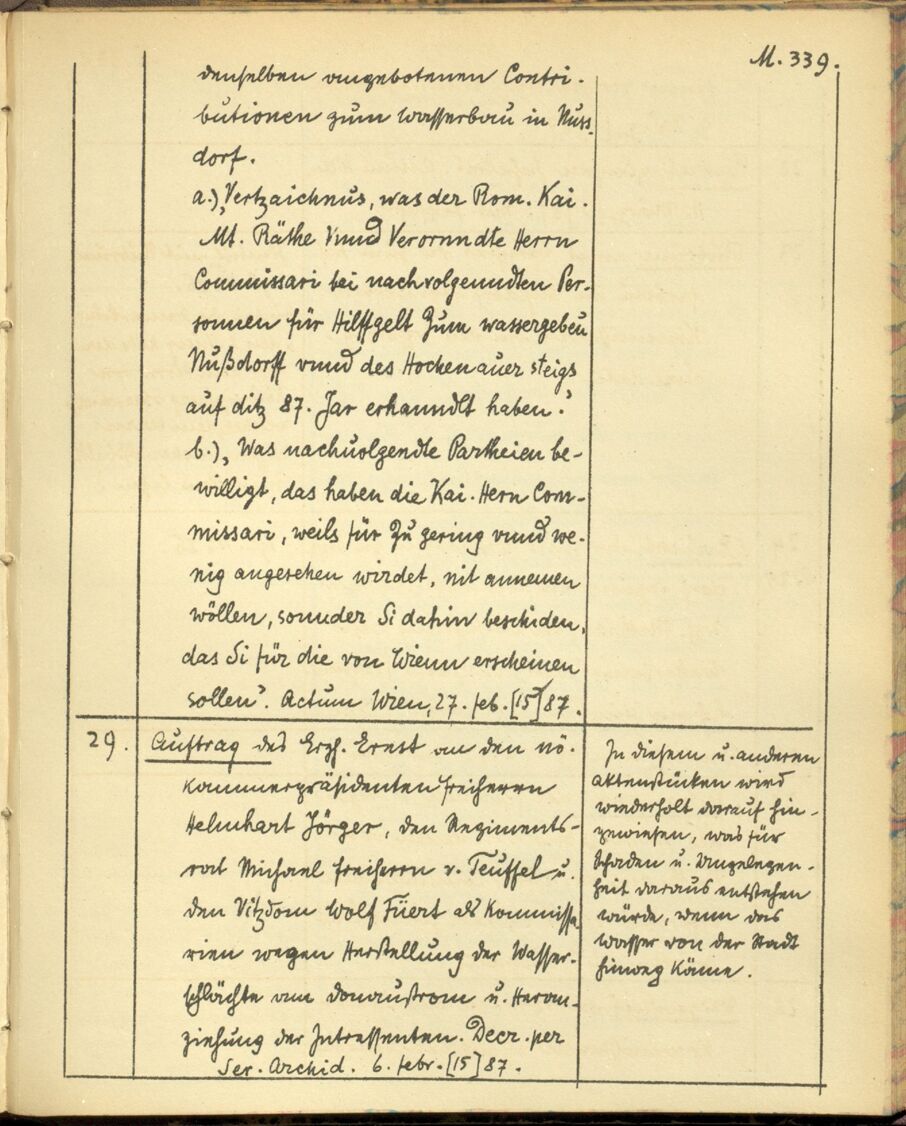 M. 339.
denselben angebotenen Contri-
butionen zum Wasserbau in Nuss-
dorf.
a.) „Vertzaichnus, was der Rom. Kai.
Mt. Räthe vnnd Verornndte Herrn
Commissari bei nachvolgenndten Per-
sonnen für Hilffgelt Zum wassergebeu
Nußdorff vnnd des Hochenauer steigs
auf ditz 87. Jar erhanndlt haben.“
b.) „Was nachuolgendte Partheien be-
willigt, das haben die Kai. Hern Com-
missari, weils für Zu gering vnnd we-
nig angesehen wirdet, nit annemen
wöllen, sonnder Si dahin beschiden,
das Si für die von Wienn erscheinen
sollen“. Actum Wien, 27. feb. [15]87.
29.
Auftrag des Erzh. Ernst an den nö.
Kammerpräsidenten Freiherrn
Helmhart Jörger, den Regiments-
rat Michael Freiherrn v. Teuffel u.
den Vitzdom Wolf Füert als Kommissa-
rien wegen Herstellung der Wasser-
schlächte am Donaustrom u. Heran-
ziehung der Intressenten. Decr. per
Ser. Archid. 6. febr. [15]87.
In diesem u. anderen
Aktenstücken wird
wiederholt darauf hin-
gewiesen, was für
Schaden u. Ungelegen-
heit daraus entstehen
würde, wenn das
Wasser von der Stadt
hinweg käme.